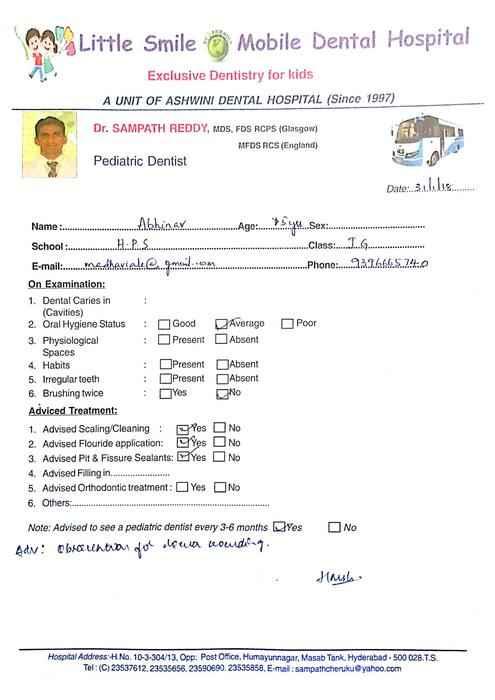 Little Smile Mobile Dental Hospital
Exclusive Dentistry for kids
A UNIT OF ASHWINI DENTAL HOSPITAL (Since 1997)
Dr. SAMPATH REDDY, MDS, FDS RCPS (Glasgow)
MFDS RCS (England)
Pediatric Dentist
Date: 31/1/18
Name: Abhinav Age: Sex:
School: H.P.S Class: I G
E-mail: @gmail.com Phone: 9396665740
On Examination:
1. Dental Caries in :
(Cavities)
2. Oral Hygiene Status : Good Average Poor
3. Physiological : Present Absent
Spaces
4. Habits : Present Absent
5. Irregular teeth : Present Absent
6. Brushing twice : Yes No
Adviced Treatment:
1. Advised Scaling/Cleaning : Yes No
2. Advised Flouride application: Yes No
3. Advised Pit & Fissure Sealants: Yes No
4. Advised Filling in....................
5. Advised Orthodontic treatment : Yes No
6. Others:..................................................................
Note: Advised to see a pediatric dentist every 3-6 months Yes No
Adv: Observation for
Hospital Address:-H.No. 10-3-304/13, Opp: Post Office, Humayunnagar, Masab Tank, Hyderabad - 500 028.T.S.
Tel : (C) 23537612, 23535656, 23590690. 23535858, E-Mail : sampathcheruku@yahoo.com